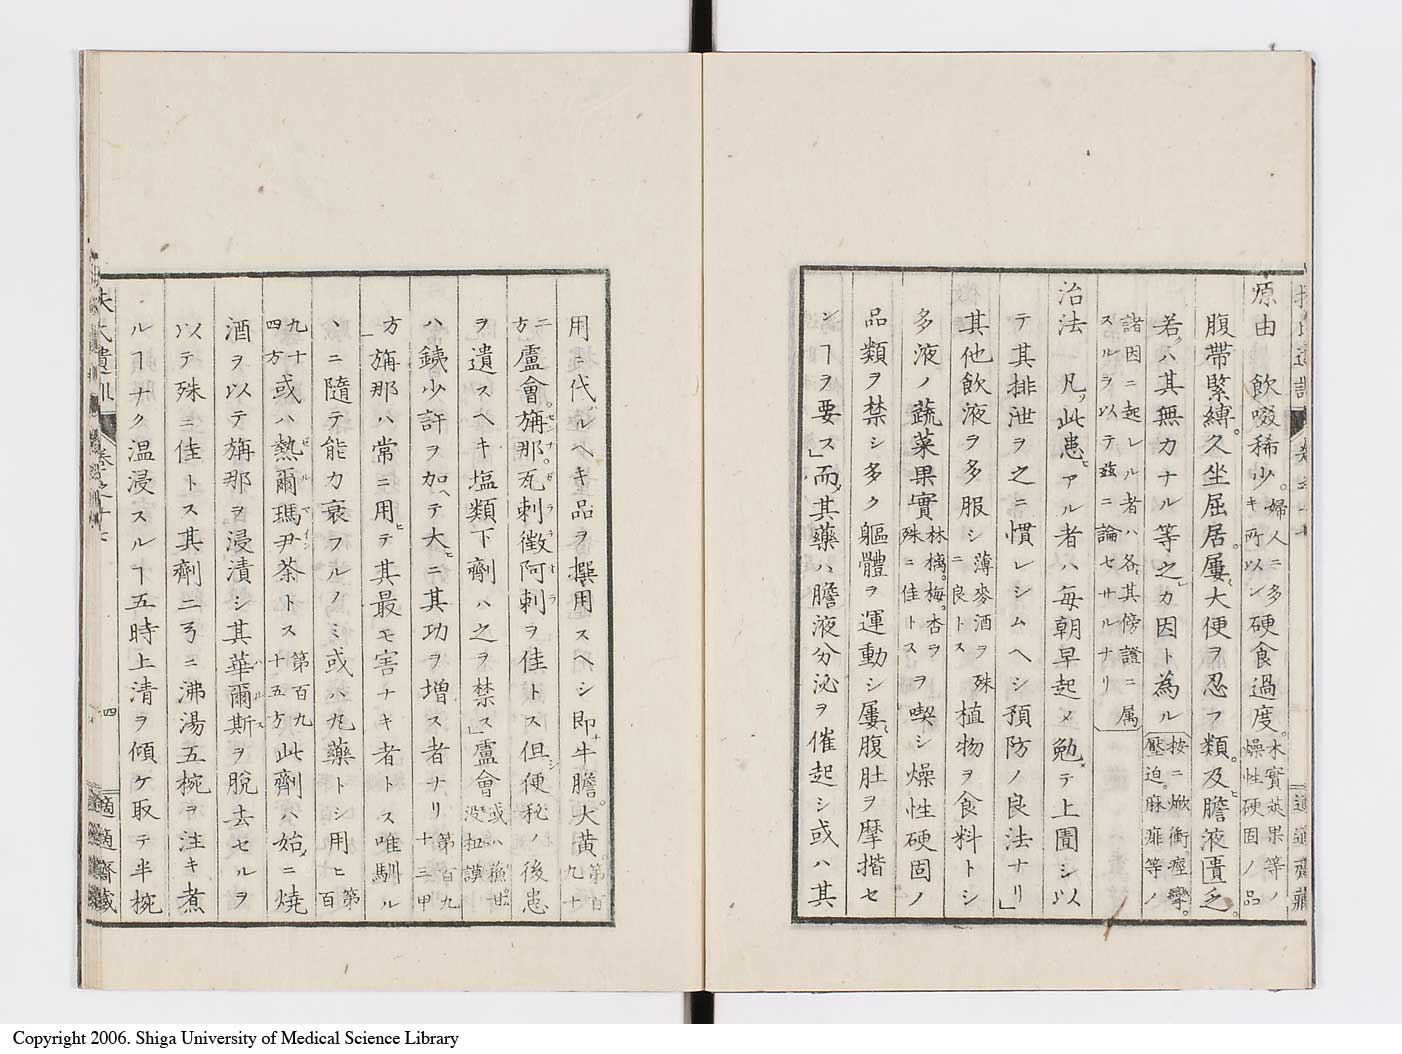 原由　飲啜稀少。婦人ニ多キ所以ン硬食過度。木實莢果等ノ燥性硬固ノ品
腹帯緊縛。久坐屈居。屢大便ヲ忍フ類。及ヒ膽液匱乏。
若クハ其無力ナル等之レカ因ト為ル按ニ焮衝。痙攣。壓迫。麻痺等ノ
諸因ニ起レル者ハ各其傍證ニ属スルヲ以テ茲ニ論セサルナリ
治法　凡ソ此患ヒアル者ハ毎朝早起メ勉メテ上圊シ以
テ其排泄ヲ之ニ慣レシムヘシ預防ノ良法ナリ」
其他飲液ヲ多服シ薄麥酒ヲ殊ニ良トス植物ヲ食料トシ
多液ノ蔬菜果實林檎。梅。杏ヲ殊ニ佳トスヲ喫シ燥性硬固ノ
品類ヲ禁シ多ク軀體ヲ運動シ屢腹肚ヲ摩揩セ
シヿヲ要ス」而其藥ハ膽液分泌ヲ催起シ或ハ其
用ニ代ルヘキ品ヲ撰用スヘシ即チ牛膽。大黄。第百九十
二方盧會。旃那。瓦刺徴阿刺ヲ佳トス但シ便秘ノ後患
ヲ遺スヘキ塩類下劑ハ之ヲ禁ス」盧會或ハ
ハ銕少許ヲ加ヘテ大ヒニ其功ヲ増ス者ナリ第百九十三甲
方旃那ハ常ニ用ヒテ其最モ害ナキ者トス唯馴ル
ヽニ隨テ能力衰フルノミ或ハ丸藥トシ用ヒ第百
九十四方或ハ熱爾瑪尹茶トス第百九十五方此劑ハ始メニ燒
酒ヲ以テ旃那ヲ浸漬シ其華爾斯ヲ脱去セルヲ
以テ殊ニ佳トス其劑二弓ニ沸湯五椀ヲ注キ煮
ルヿナク温浸スルヿ五時上清ヲ傾ケ取テ半椀
扶氏遺訓　巻之十七　四　適適齋藏
Copyright 2006. Shiga University of Medical Science Library